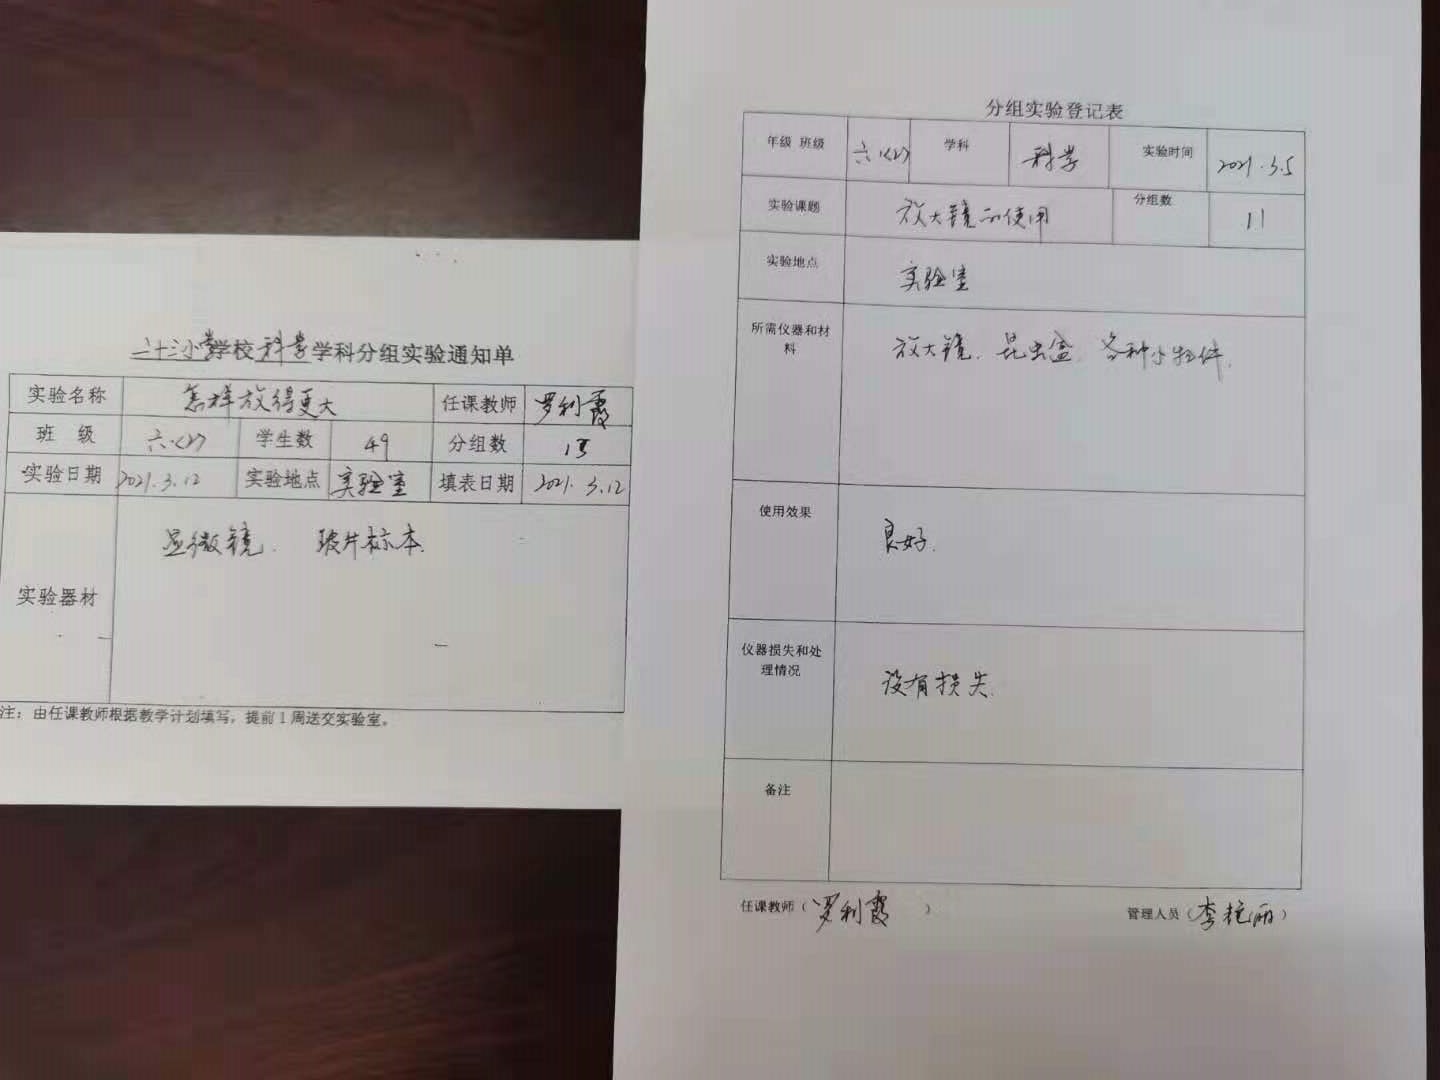 二十三小学学校科学学科分组实验通知单
实验名称 怎样放得更大 任课教师 罗利霞
班 级 六.(2) 学生数 49 分组数
实验日期 2021.3.12 实验地点 实验室 填表日期 2021.3.12
实验器材 显微镜. 玻片标本.
注：由任课教师根据教学计划填写，提前1周送交实验室。
分组实验登记表
年级 班级 六.(2) 学科 科学 实验时间 2021.3.5
实验课题 放大镜的使用 分组数 11
实验地点 实验室
所需仪器和材料 放大镜、昆虫盒、各种小物件.
使用效果 良好.
仪器损失和处理情况 没有损失.
备注
任课教师（罗利霞） 管理人员（李艳丽）